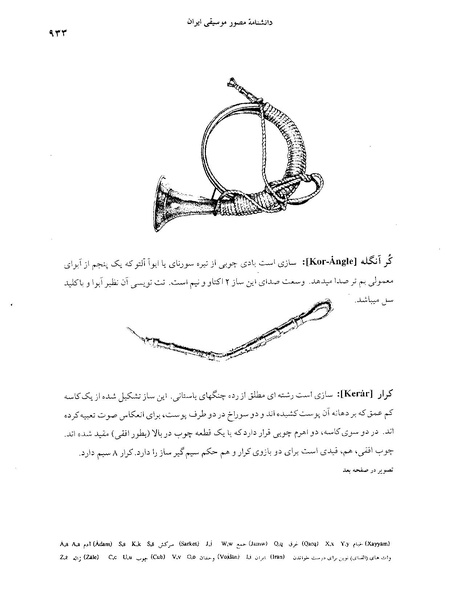 دانشنامهٔ مصور موسیقی ایران
۹۳۳
کُر آنگله [Kor-Ángle]: سازی است بادی چوبی از تیره سورنای یا ابوآ آلتو که یک پنجم از آبوای
معمولی بم تر صدا میدهد. وسعت صدای این ساز ۲ اکتاو و نیم است. نت نویسی آن نظیر آبوا و باکلید
سل میباشد.
کرار [Kerár]: سازی است رشته ای مطلق از رده چنگهای باستانی. این ساز تشکیل شده از یک کاسه
کم عمق که بر دهانه آن پوست کشیده اند و دو سوراخ در دو طرف پوست، برای انعکاس صوت تعبیه کرده
اند. در دو سوی کاسه، دو اهرم چوبی قرار دارد که با یک قطعه چوب در بالا (بطور افقی) مقید شده اند.
چوب افقی، هم، قیدی است برای دو بازوی کرار و هم حکم سیم گیر ساز را دارد. کرار ۸ سیم دارد.
تصویر در صفحه بعد
A,a Á,á آدم (Ádam) S,s K,k Š,š سرکش (Sarkeš) J,j W,w جمع (Jamw) Q,q غرق (Qarq) X,x Y,y خیام (Xayyám)
Z,z ژاله (Žále) C,c U,u چوب (Cub) V,v O,o وجدان (Vojdán) I,i ایران (Irán) نوین برای درست خواندن